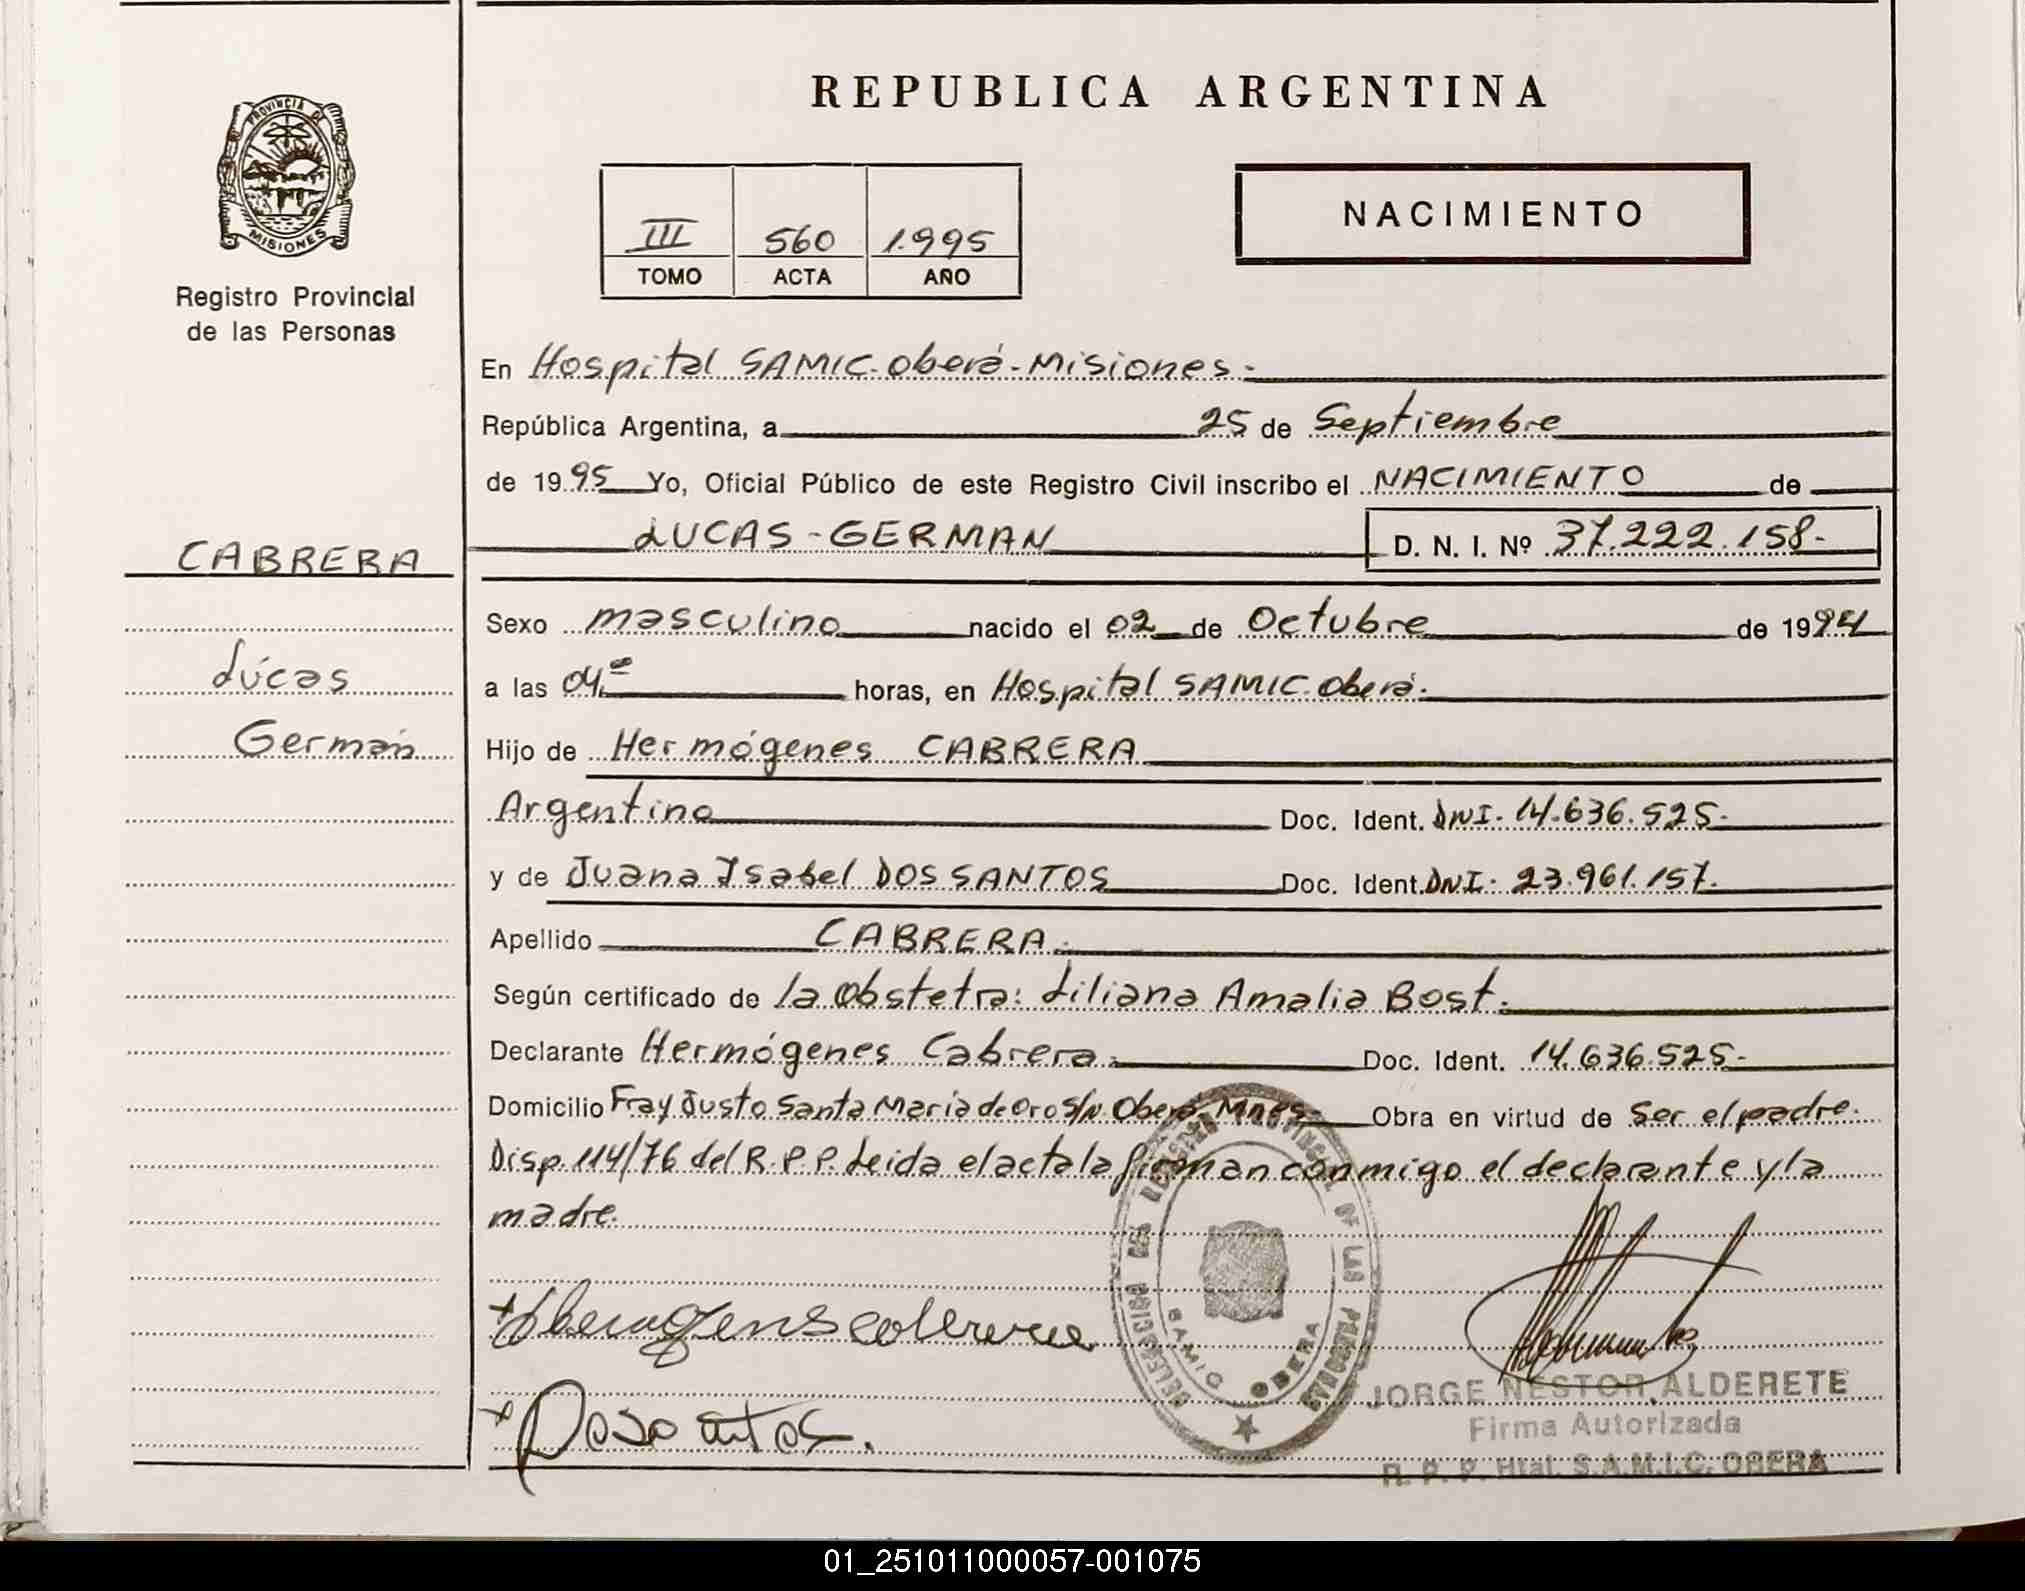 REPUBLICA ARGENTINA
PROVINCIA DE
MISIONES
Registro Provincial
de las Personas
III 560 1.995
TOMO ACTA AÑO
NACIMIENTO
En Hospital SAMIC-Oberá-Misiones-
República Argentina, a 25 de Septiembre
de 1995 Yo, Oficial Público de este Registro Civil inscribo el NACIMIENTO de
LUCAS-GERMAN D. N. I. Nº 37.222.158-
CABRERA
Lúcas
Germán
Sexo masculino nacido el 02 de Octubre de 1994
a las 04,00 horas, en Hospital SAMIC-Oberá-
Hijo de Hermógenes CABRERA
Argentino Doc. Ident. DNI-14.636.525-
y de Juana Isabel DOS SANTOS Doc. Ident. DNI-23.961.157.
Apellido CABRERA-
Según certificado de la Obstetra: Liliana Amalia Bost.
Declarante Hermógenes Cabrera- Doc. Ident. 14.636.525-
Domicilio Fray Justo Santa Maria de Oro S/N Oberá-Mnes- Obra en virtud de Ser el padre.
Disp. 114/76 del R.P.P. Leida el acta la firman conmigo el declarante y la
madre.
DELEGACION DEL REGISTRO PROVINCIAL DE LAS PERSONAS
SAMIC OBERA
JORGE NESTOR ALDERETE
Firma Autorizada
R. P. P. Htal. S.A.M.I.C. OBERA
01_251011000057-001075